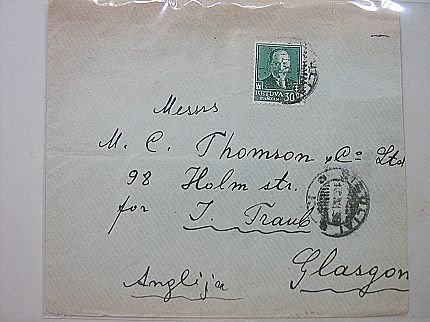 LIETUVA
30
Messrs
M. C. Thomson & Co Ltd
98 Holm str.
for J. Traub
Glasgow
Anglija